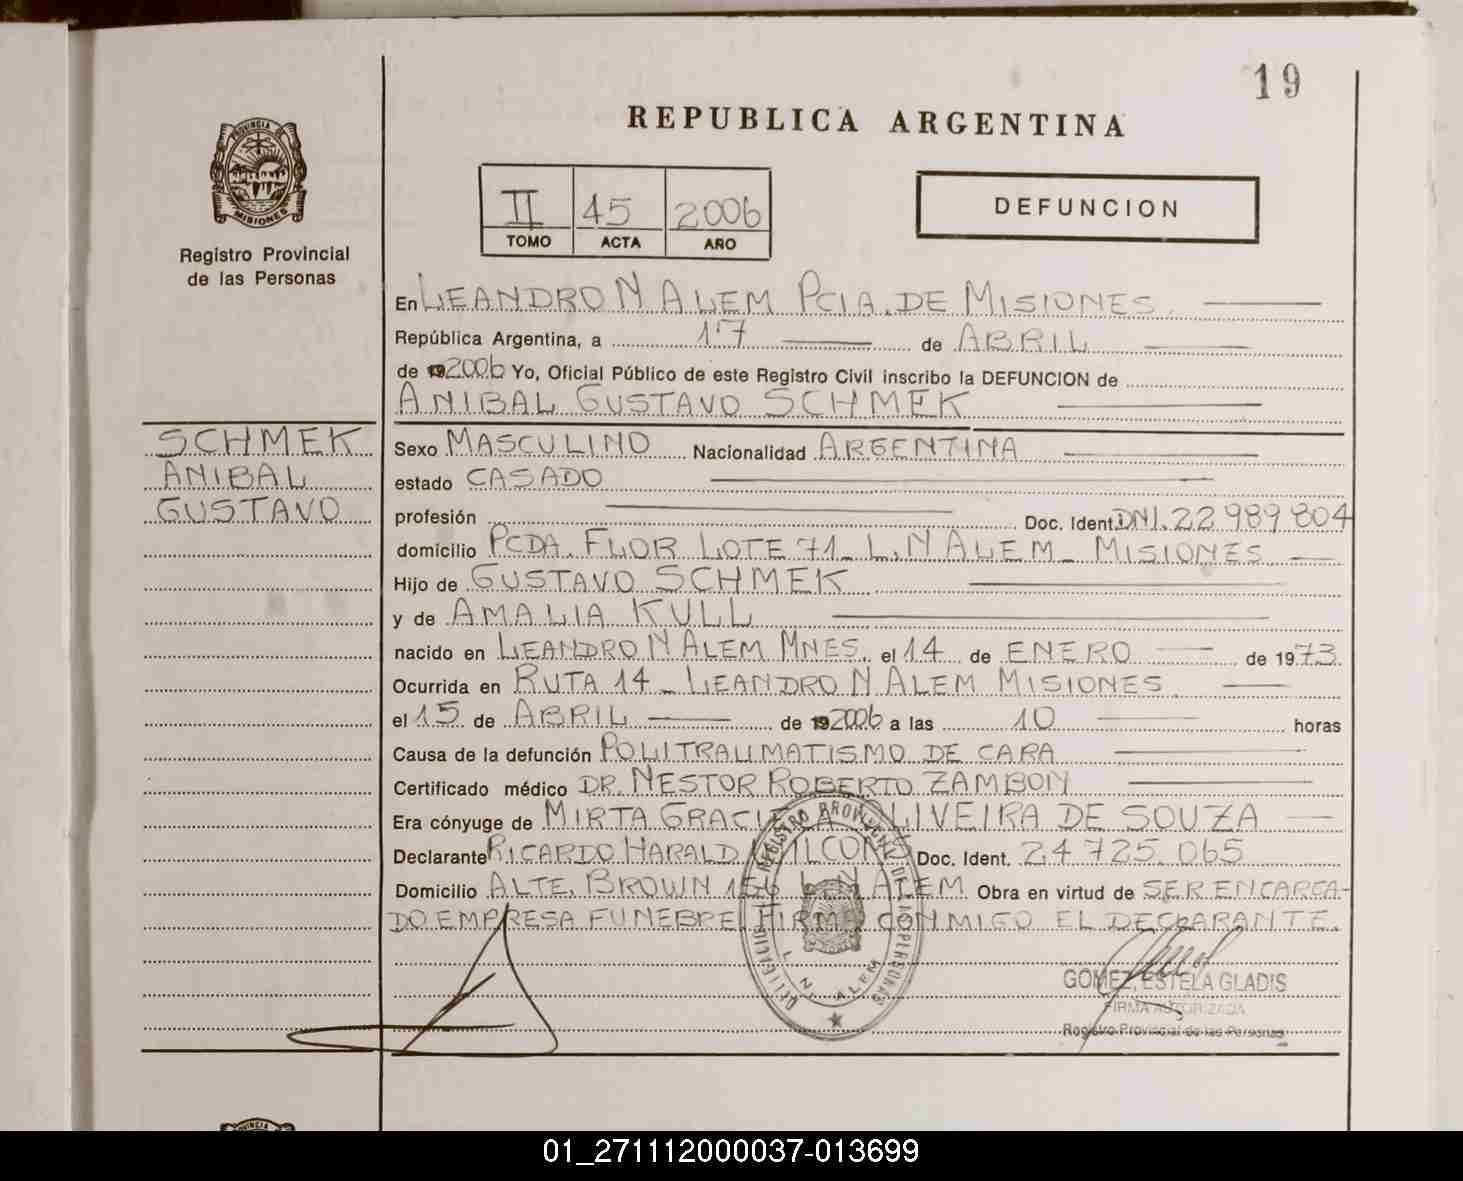 19
REPUBLICA ARGENTINA
PROVINCIA DE
MISIONES
Registro Provincial
de las Personas
II 45 2006
TOMO ACTA AÑO
DEFUNCION
En LEANDRO N ALEM PCIA. DE MISIONES
República Argentina, a 17 de ABRIL
de 2006 Yo, Oficial Público de este Registro Civil inscribo la DEFUNCION de
ANIBAL GUSTAVO SCHMEK
SCHMEK
ANIBAL
GUSTAVO
Sexo MASCULINO Nacionalidad ARGENTINA
estado CASADO
profesión Doc. Ident. DNI. 22 989 804
domicilio PCDA. FLOR LOTE 71 - L. N ALEM - MISIONES
Hijo de GUSTAVO SCHMEK
y de AMALIA KULL
nacido en LEANDRO N ALEM MNES. el 14 de ENERO de 1973
Ocurrida en RUTA 14 - LEANDRO N ALEM MISIONES
el 15 de ABRIL de 2006 a las 10 horas
Causa de la defunción POLITRAUMATISMO DE CARA
Certificado médico DR. NESTOR ROBERTO ZAMBON
Era cónyuge de MIRTA GRACIELA OLIVEIRA DE SOUZA
Declarante RICARDO HARALD Doc. Ident. 24 725. 065
Domicilio ALTE. BROWN 156 L. N ALEM Obra en virtud de SER ENCARGA-
DO EMPRESA FUNEBRE. FIRMA CONMIGO EL DECLARANTE.
DELEGACION REGISTRO PROVINCIAL DE LAS PERSONAS
L. N. ALEM
GOMEZ, ESTELA GLADIS
FIRMA AUTORIZADA
Registro Provincial de las Personas
PROVINCIA DE
01_271112000037-013699